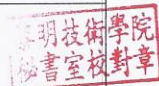 黎明技術學院
秘書室校對章